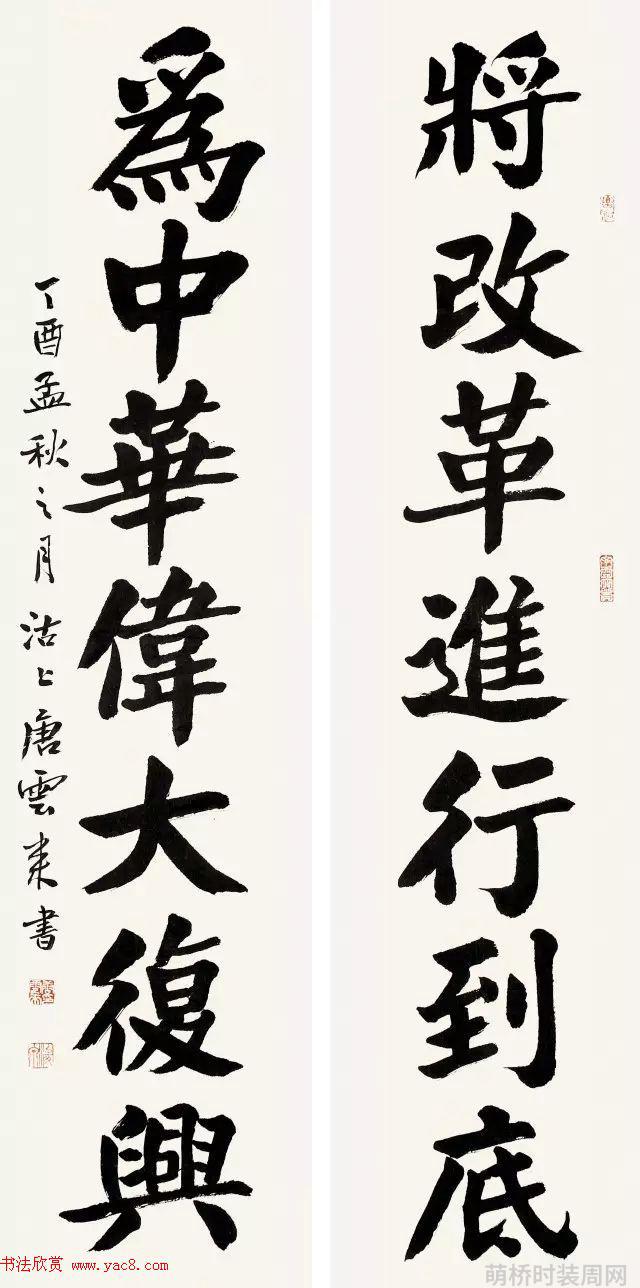 將改革進行到底
爲中華偉大復興
丁酉孟秋之月沽上唐雲来書
书法欣赏 www.yac8.com
萌桥时装周网